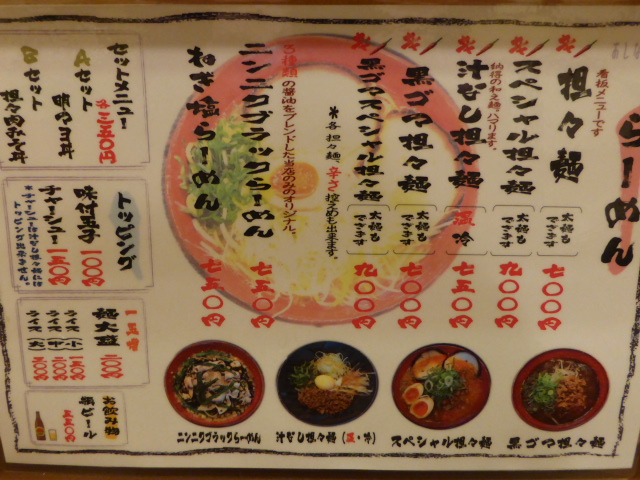 らーめん
看板メニューです
担々麺
太麺もできます
七〇〇円
スペシャル担々麺
太麺もできます
九〇〇円
納得の和え麺。ハマります。
汁なし担々麺
温 冷
七五〇円
黒ゴマ担々麺
太麺もできます
七〇〇円
黒ゴマスペシャル担々麺
太麺もできます
九〇〇円
※各担々麺、辛さ控えめも出来ます。
3種類の醤油をブレンドした当店のみのオリジナル。
ニンニクブラックらーめん
七五〇円
ねぎ塩らーめん
七五〇円
セットメニュー
Aセット
明マヨ丼
Bセット
担々肉みそ丼
トッピング
味付玉子
一〇〇円
チャーシュー
一五〇円
※チャーシューは汁なし担々麺には
トッピング出来ません。
麺大盛
ライス(小)
ライス(中)
ライス(大)
お飲み物
瓶ビール
黒ゴマ担々麺
スペシャル担々麺
汁なし担々麺(温・冷)
ニンニクブラックらーめん